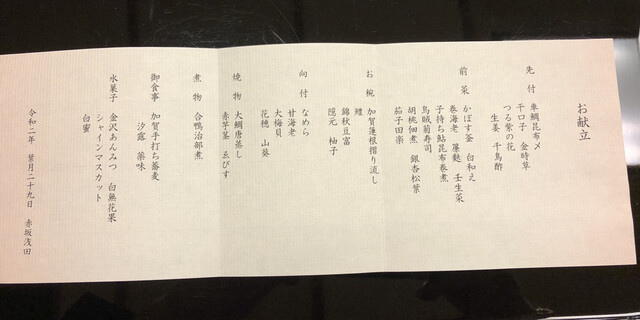 お献立
先付 車鯛昆布〆
干口子 金時草
つる紫の花
生姜 千鳥酢
前菜 かぼす釜 白和え
巻海老 簾麩 壬生菜
子持ち鮎昆布巻煮
烏賊菊寿司
胡桃佃煮 銀杏松葉
茄子田楽
お椀 加賀蓮根摺り流し
鱧
錦秋豆富
隠元 柚子
向付 なめら
甘海老
大梅貝
花穂 山葵
焼物 大鯛唐蒸し
赤芋茎 ゑびす
煮物 合鴨治部煮
御食事 加賀手打ち蕎麦
汐露 薬味
水菓子 金沢あんみつ 白無花果
シャインマスカット
白蜜
令和二年 葉月二十九日 赤坂浅田